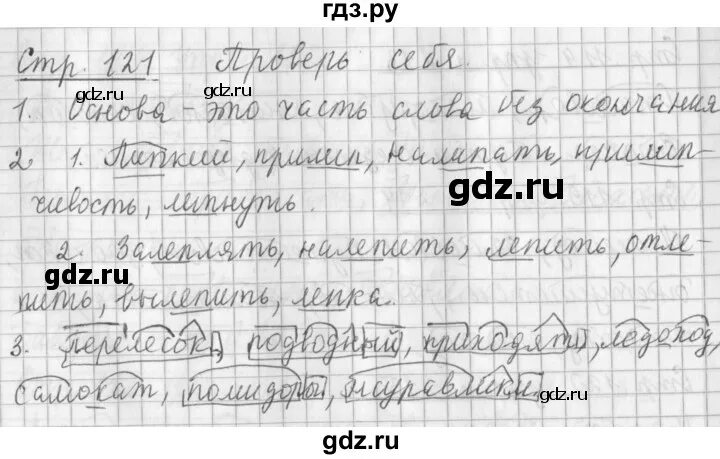 гдз.ру
Стр. 121 Проверь себя.
1. Основа - это часть слова без окончания
2 1. Липкий, прилип, налипать, прилип-
чивость, липнуть.
gdz.ru
2. Залеплять, налепить, лепить, отле-
gdz.ru
пить, вылепить, лепка.
gdz.ru
3. перелесок, подводный, приходят, ледоход,
самокат, помидоры, журавлики.
gdz.ru
gdz.ru